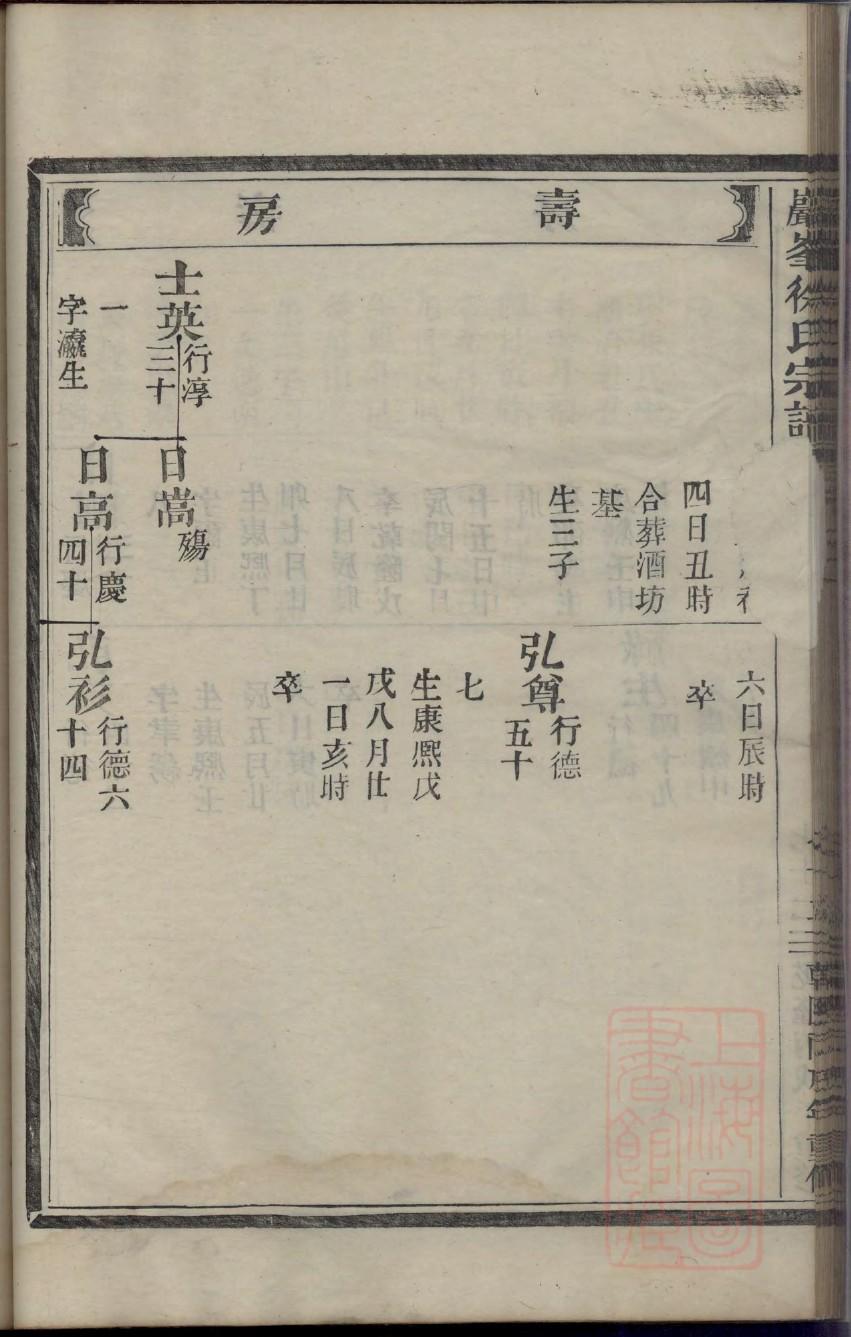 巖峯徐氏宗譜
壽房
四日丑時
合葬酒坊
基
生三子
六日辰時
卒
弘尊行德
五十
七
生康熙戊
戌八月廿
一日亥時
卒
士英行淳
三十
一
字瀛生
日嵩殤
日高行慶
四十
弘衫行德六
十四
上海圖書館藏